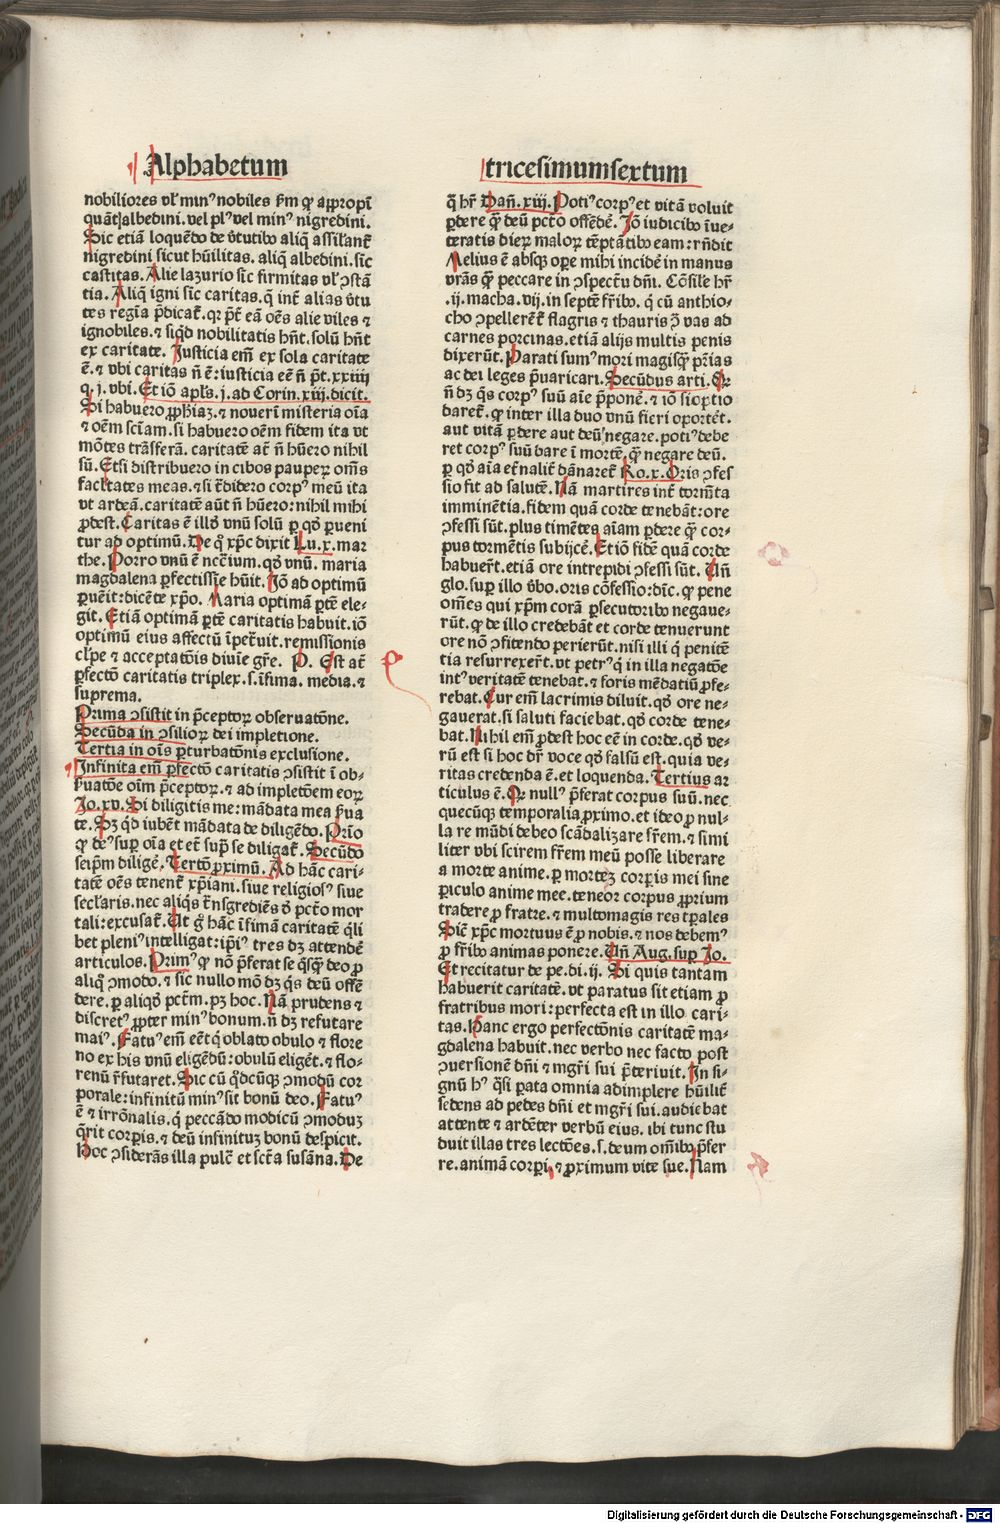 Alphabetum
tricesimumsextum
nobiliores vl' min⁹ nobiles
quãt albedini. vel pl⁹ vel min⁹ nigredini.
Sic etiã loquẽdo de
nigredini sicut hũilitas. aliq̃ albedini. sic
castitas. Alie lazurio sic firmitas vl' ꝯstã
tia. Aliq̃ igni sic caritas. q̃ int̃ alias
tes regĩa p̃dicat̃. qꝛ p̃t̃ eã oẽs alie viles ⁊
ignobiles. ⁊ siqd nobilitatis hñt. solũ hñt
ex caritate. Justicia em̃ ex sola caritate
ẽ. ⁊ vbi caritas ñ ẽ: iusticia eẽ ñ p̃t. xxiiij
q. j. vbi. Et iõ apl's. j. ad Corin. xiij. dicit.
Si habuero ꝓphiaꝫ. ⁊ nouerĩ misteria oĩa
⁊ oẽm scĩam. si habuero oẽm fidem ita vt
mõtes trãsferã. caritatẽ at̃ ñ hũero nihil
sũ. Etsi distribuero in cibos pauperꝝ om̃s
facl'tates meas. ⁊ si t̃didero corp⁹ meũ ita
vt ardeã. caritatẽ aũt ñ hũero: nihil mihi
ꝓdest. Caritas ẽ illd' vnũ solũ ꝑ qd' ꝑueni
tur ad optimũ. De q̊ xp̃c dixit Lu. x. mar
the. Porro vnũ ẽ nccĩum. qd' vnũ. maria
magdalena ꝑfectissĩe hũit. Jõ ad optimũ
ꝑuẽit: dicẽte xp̃o. Maria optimã ꝑtẽ ele-
git. Etiã optimã ꝑtẽ caritatis habuit. iõ
optimũ eius affectũ ĩpet̃uit. remissionis
cl'pe ⁊ acceptatõis diuĩe gr̃e. P. Est at̃
ꝑfectõ caritatis triplex. s. ĩfima. media. ⁊
suprema.
Prima ꝯsistit in p̃ceptoꝝ obseruatõne.
Secũda in ꝯsilioꝝ dei impletione.
Tertia in oĩs ꝑturbatõnis exclusione.
Infinita em̃ ꝑfectõ caritatis ꝯsistit ĩ ob-
ẛuatõe oĩm p̃ceptoꝝ. ⁊ ad impletõem eoꝝ
Jo. xv. Si diligitis me: mãdata mea ẛua
te. Sꝫ qd iubẽt mãdata de diligẽdo. Prĩo
ꝙ de⁹ suꝑ oĩa et et̃ sup̃ se diligat̃. Secũdo
seip̃m diligẽ. Tertõ ꝓximũ. Ad hãc cari-
tatẽ oẽs tenent̃ xp̃iani. siue religios⁹ siue
secl'aris. nec aliqs t̃nsgrediẽs
tali: excusat̃. Ut g̃ hãc ĩfimã caritatẽ qli
bet pleni⁹ intelligat: ip̃i⁹ tres dꝫ attendẽ
articulos. Prim⁹ ꝙ nõ p̃ferat se deo ꝓ
aliq̊ ꝯmodo. ⁊ sic nullo mõ dꝫ qs deũ offẽ
dere. ꝑ aliqd' pctm̃. pꝫ hoc. Nã prudens ⁊
discret⁹ ꝓpter min⁹ bonum. ñ dꝫ refutare
mai⁹. Fatu⁹ em̃ eẽt q̊ oblato obulo ⁊ flore
no ex his vnũ eligẽdũ: obulũ eligẽt. ⁊ flo-
renũ r̃futaret. Sic cũ qd'cũqꝫ ꝯmodũ cor
porale: infinitũ min⁹ sit bonũ deo. Fatu⁹
ẽ ⁊ irrõnalis. q̊ peccãdo modicũ ꝯmoduꝫ
q̃rit corꝑis. ⁊ deũ infinituꝫ bonũ despicit.
Hoc ꝯsiderãs illa pulc̃ et sct̃a susãna. De
q̃ hr̃ Dañ. xiij. Poti⁹ corp⁹ et vitã voluit
ꝑdere q̃ deũ pct̃o offẽdẽ. Jõ iudicibꝰ ĩue-
teratis dierꝝ maloꝝ tẽptãtibꝰ eam: rñdit
Melius ẽ absqꝫ oꝑe mihi incidẽ in manus
vr̃as q̃ peccare in ꝯspectu dñi. Cõsile hr̃
.ij. macha. vij. in septẽ fr̃ibꝰ. q̊ cũ anthio-
cho ꝯpelleret̃ flagris ⁊ thauris vas ad
carnes porcinas. etiã alijs multis penis
dixerũt. Parati sum⁹ mori magisq̃ pr̃ias
ac dei leges p̃uaricari. Secũdus arti. Qꝛ
ñ dꝫ qs corp⁹ suũ aĩe p̃ponẽ. ⁊ iõ si
daret̃. ꝙ inter illa duo vnũ fieri oportẽt.
aut vitã ꝑdere aut deũ negare. poti⁹ debe
ret corp⁹ suũ dare ĩ mortẽ. q̃ negare deũ.
ꝑ qd' aĩa et̃nalit̃ dãnaret̃ Ro. x. Oris ꝯfes
sio fit ad salutẽ. Nã martires int̃ torm̃ta
imminẽtia. fidem quã corde tenebãt: ore
ꝯfessi sũt. plus timẽtes aĩam ꝑdere q̃ cor-
pus tormẽtis subijcẽ. Et iõ fidẽ quã corde
habuer̃t. etiã ore intrepidi ꝯfessi sũt. Uñ
glo. suꝑ illo v̓bo. oris cõfessio: dĩc. ꝙ pene
om̃es qui xp̃m corã ꝑsecutoribꝰ negaue-
rũt. ꝙ de illo credebãt et corde tenuerunt
ore nõ ꝯfitendo perierũt. nisi illi q̊ penitẽ
tia resurrexer̃t. vt petr⁹ q̊ in illa negatõe
int⁹ veritatẽ tenebat. ⁊ foris mẽdatiũ ꝓfe-
rebat. Cur em̃ lacrimis diluit. qd' ore ne-
gauerat. si saluti faciebat. qd' corde tene-
bat. Nihil em̃ ꝓdest hoc eẽ in corde. qd' ve-
rũ est si hoc dr̃ voce qd' falsũ est. quia ve-
ritas credenda ẽ. et loquenda. Tertius ar
ticulus ẽ. Qꝛ null⁹ p̃ferat corpus suũ. nec
quecũqꝫ temporalia ꝓximo. et ideo ꝓ nul-
la re mũdi debeo scãdalizare fr̃em. ⁊ simi
liter vbi scirem fr̃em meũ posse liberare
a morte anime. ꝑ morteꝫ corꝑis mei sine
ꝑiculo anime mee. teneor corpus ꝓprium
tradere ꝓ fratre. ⁊ multomagis res tꝑales
Siẽ xp̃c mortuus ẽ ꝓ nobis. ⁊ nos debem⁹
ꝓ fr̃ibꝰ animas ponere. Uñ Aug. suꝑ Jo.
Et recitatur de pe. di. ij. Si quis tantam
habuerit caritatẽ. vt paratus sit etiam ꝓ
fratribus mori: perfecta est in illo cari-
tas. Hanc ergo perfectõnis caritatẽ ma-
gdalena habuit. nec verbo nec facto post
ꝯuersionẽ dñi ⁊ mgr̃i sui p̃teriuit. In si-
gnũ h⁹ q̃si ꝑata omnia adimplere hũilit̃
sedens ad pedes dñi et mgr̃i sui. audiebat
attente ⁊ ardẽter verbũ eius. ibi tunc stu
duit illas tres lectões. s. deum om̃ibꝰ p̃fer
re. animã corꝑi, ⁊ ꝓximum vite sue. Nam
Digitalisierung gefördert durch die Deutsche Forschungsgemeinschaft - DFG